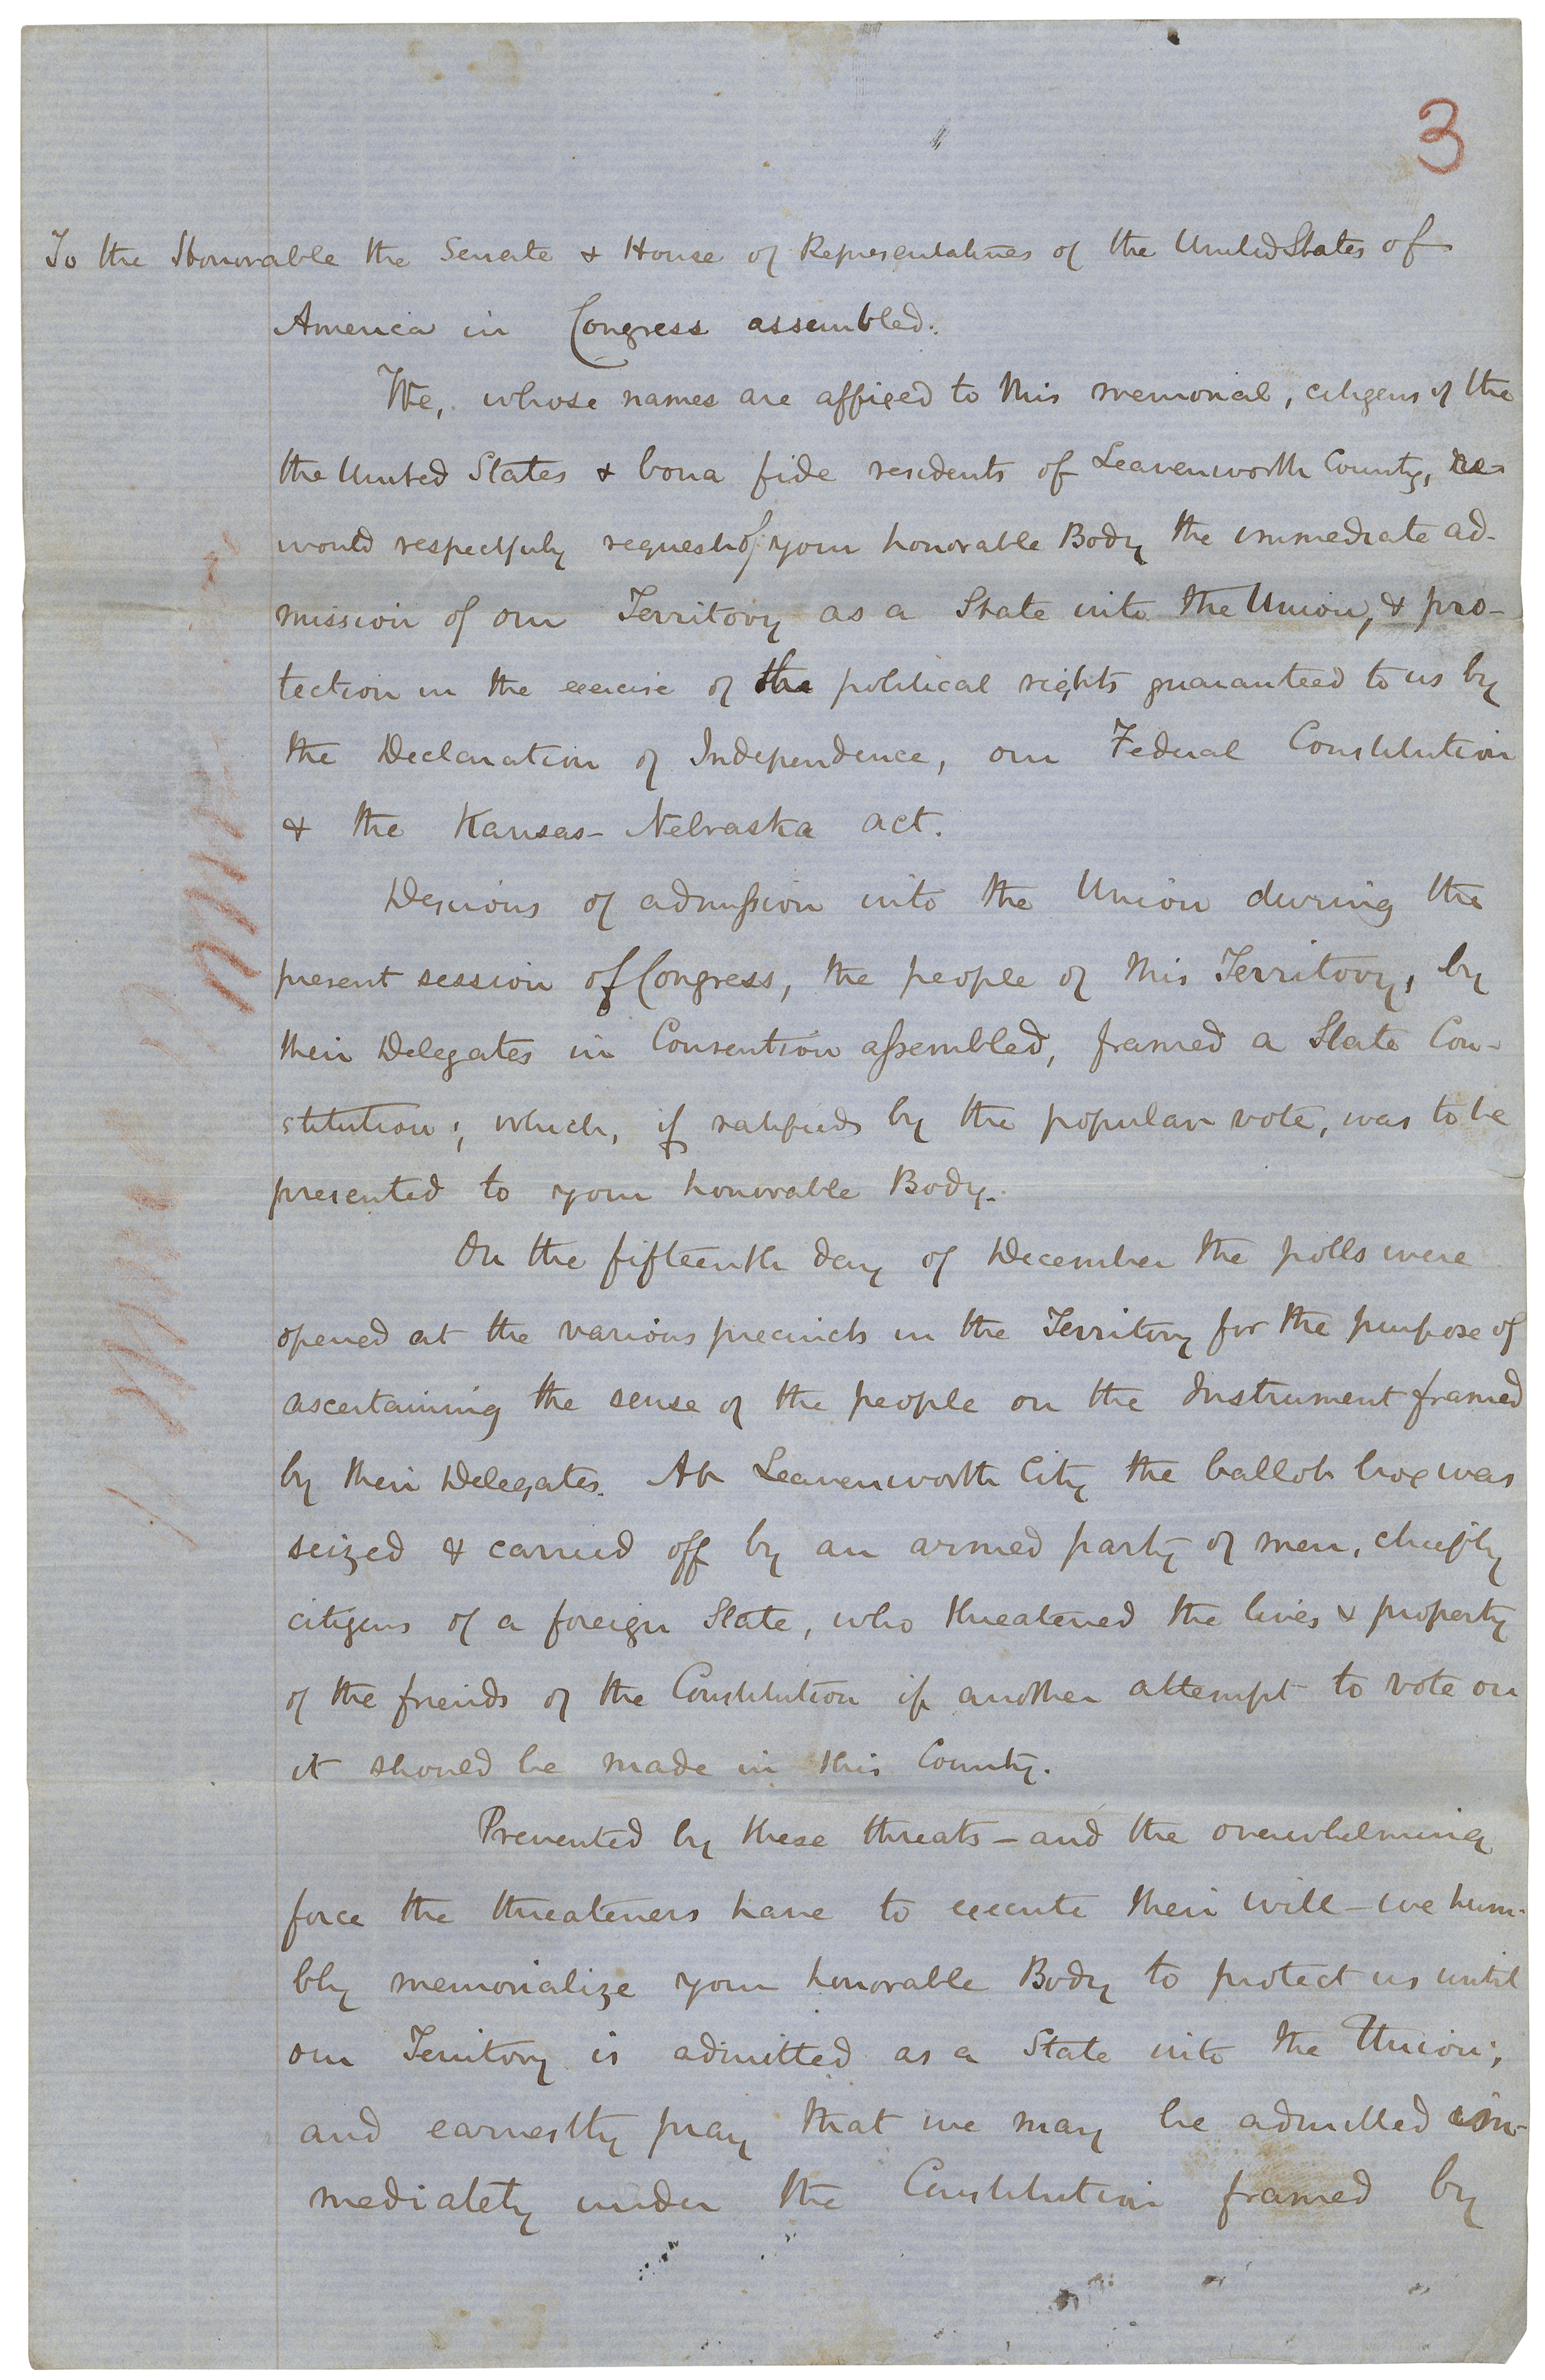 3
To the Honorable the Senate & House of Representatives of the United States of
America in Congress assembled.
We, whose names are affixed to this memorial, citizens of the
the United States & bona fide residents of Leavenworth County,
would respectfully request of your honorable Body the immediate ad-
mission of our Territory as a State into the Union, & pro-
tection in the exercise of the political rights guaranteed to us by
the Declaration of Independence, our Federal Constitution
& the Kansas-Nebraska act.
Desirous of admission into the Union during the
present session of Congress, the people of this Territory, by
their Delegates in Convention assembled, framed a State Con-
stitution; which, if ratified by the popular vote, was to be
presented to your honorable Body.
On the fifteenth day of December the polls were
opened at the various precincts in the Territory for the purpose of
ascertaining the sense of the people on the Instrument framed
by their Delegates. At Leavenworth City the ballot box was
seized & carried off by an armed party of men, chiefly
citizens of a foreign State, who threatened the lives & property
of the friends of the Constitution if another attempt to vote on
it should be made in this County.
Prevented by these threats - and the overwhelming
force the threateners have to execute their will - we hum-
bly memorialize your honorable Body to protect us until
our Territory is admitted as a State into the Union;
and earnestly pray that we may be admitted im-
mediately under the Constitution framed by